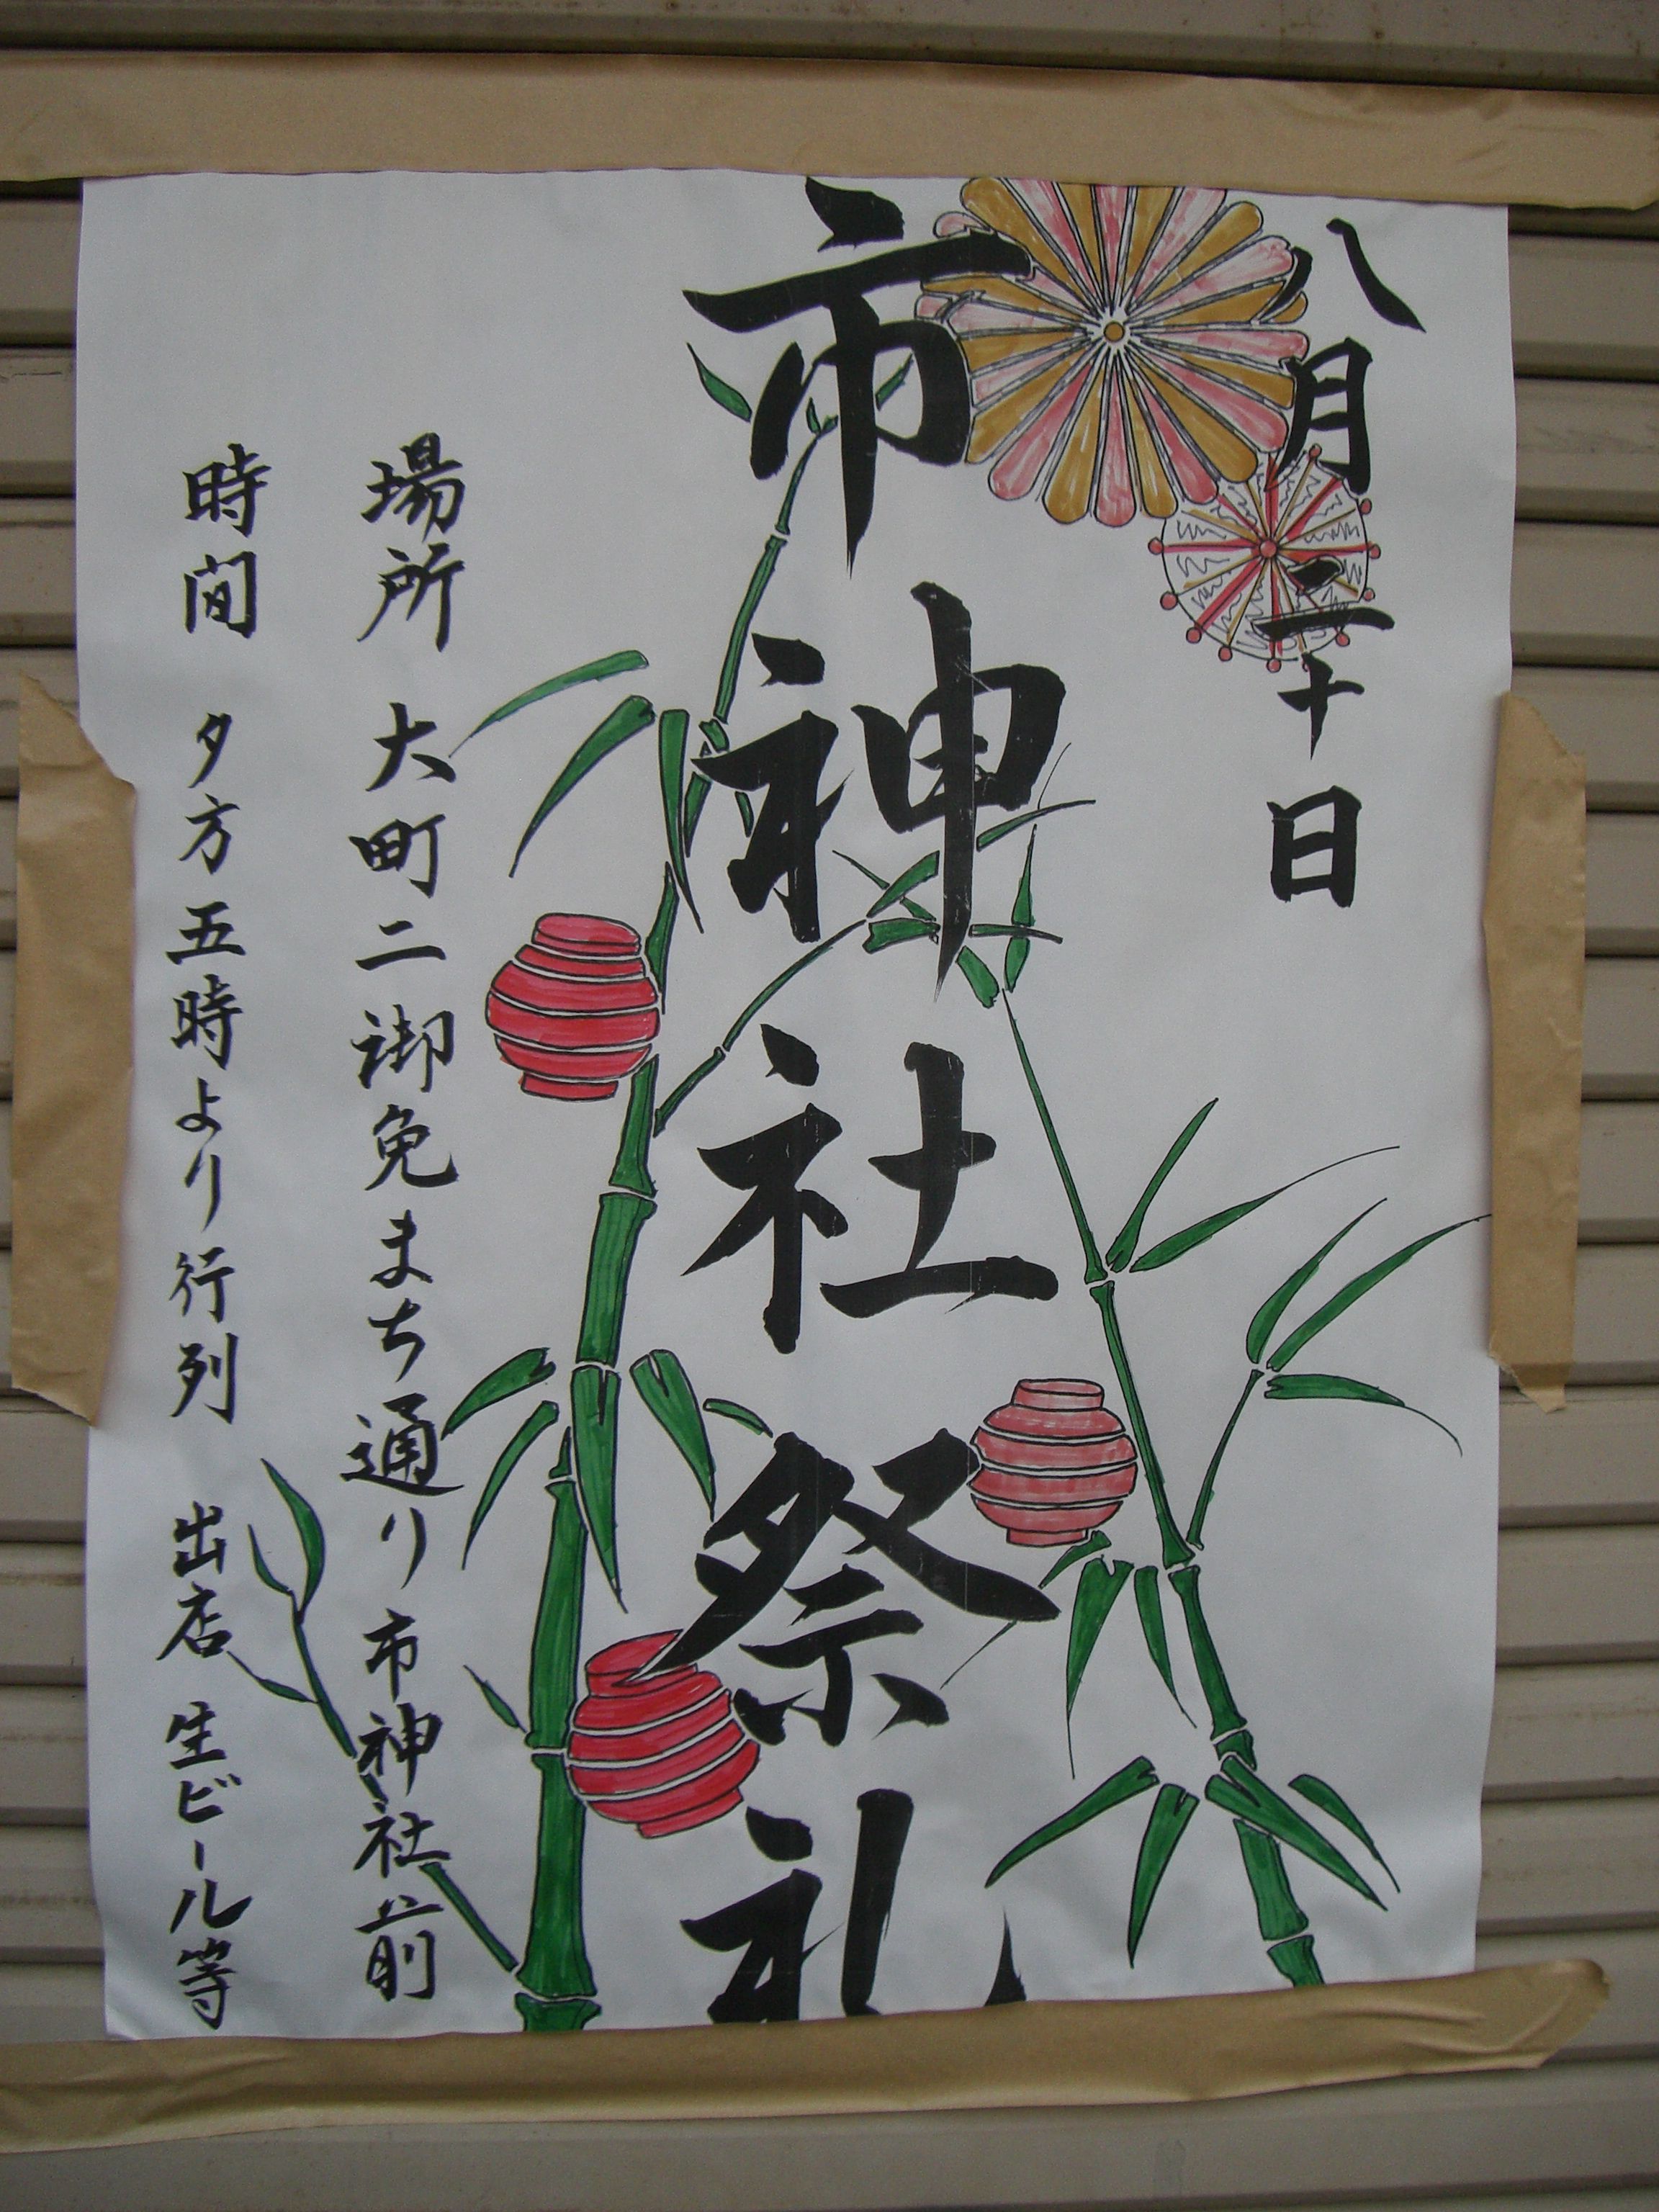 八月二十日
市神社祭礼
場所 大町二御免まち通り 市神社前
時間 夕方五時より行列 出店 生ビール等